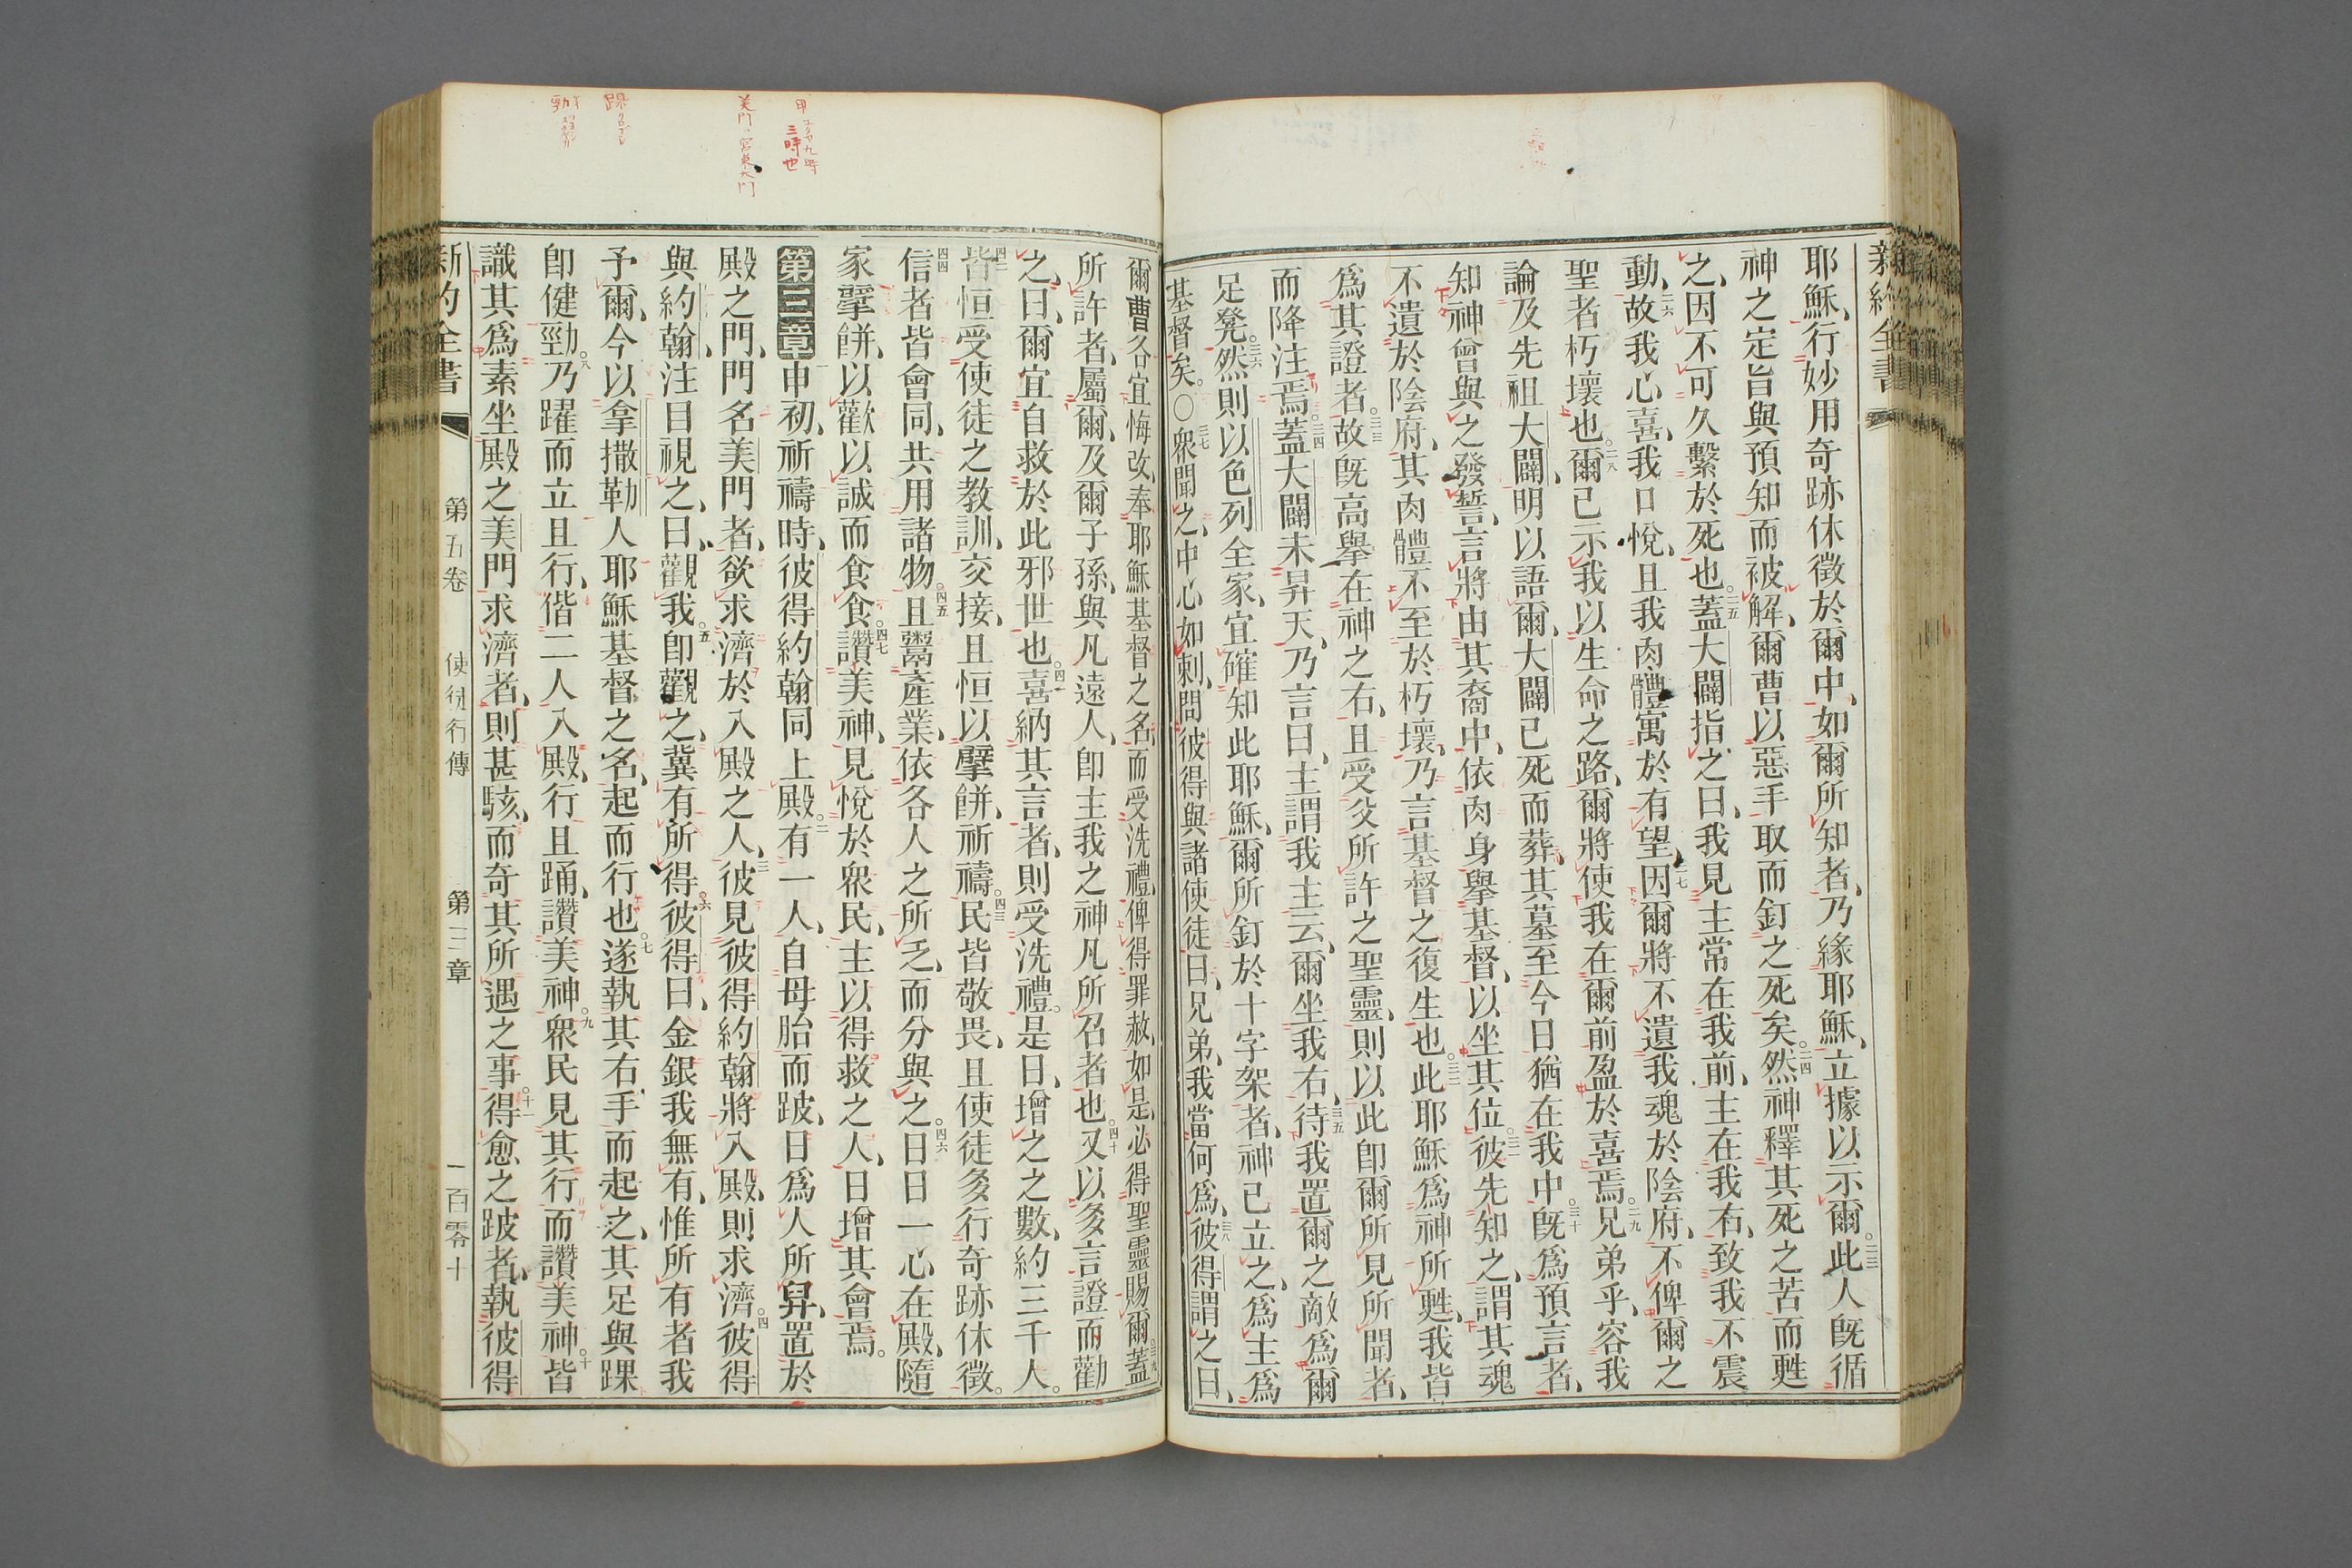 新約全書
耶穌、行妙用奇跡休徵於爾中、如爾所知者、乃緣耶穌、立據以示爾。二三此人既循
神之定旨與預知而被解、爾曹以惡手取而釘之死矣。二四然神釋其死之苦而甦
之、因不可久繫於死也。二五蓋大闢指之曰、我見主常在我前、主在我右、致我不震
動、二六故我心喜、我口悅、且我肉體寓於有望、二七因爾將不遺我魂於陰府、不俾爾之
聖者朽壞也。二八爾已示我以生命之路、爾將使我在爾前盈於喜焉。二九兄弟乎、容我
論及先祖大闢、明以語爾、大闢已死而葬、其墓至今日猶在我中。三十既為預言者、
知神曾與之發誓、言將由其裔中、依肉身擧基督、以坐其位。三一彼先知之、謂其魂
不遺於陰府、其肉體不至於朽壞、乃言基督之復生也。三二此耶穌為神所甦、我皆
為其證者。三三故既高擧在神之右、且受父所許之聖靈、則以此即爾所見所聞者、
而降注焉。三四蓋大闢未昇天、乃言曰、主謂我主云、爾坐我右、三五待我置爾之敵為爾
足凳。三六然則以色列全家、宜確知此耶穌、爾所釘於十字架者、神已立之、為主為
基督矣。○三七衆聞之、中心如刺、問彼得與諸使徒曰、兄弟、我當何為、三八彼得謂之曰、
爾曹各宜悔改、奉耶穌基督之名、而受洗禮、俾得罪赦、如是、必得聖靈賜爾。三九蓋
所許者、屬爾、及爾子孫、與凡遠人、即主我之神凡所召者也。四十又以多言證而勸
之、曰、爾宜自救於此邪世也。四一喜納其言者、則受洗禮。是日、增之之數、約三千人。
四二皆恒受使徒之教訓、交接、且恒以擘餅、祈禱。四三民皆敬畏、且使徒多行奇跡休徵。
四四信者皆會同、共用諸物。四五且鬻產業、依各人之所乏、而分與之。四六日日一心在殿、隨
家擘餅、以歡以誠而食食。四七讚美神、見悅於衆民、主以得救之人、日增其會焉。
第三章一申初、祈禱時、彼得約翰同上殿。二有一人、自母胎而跛、日為人所舁、置於
殿之門、門名美門者、欲求濟於入殿之人、三彼見彼得約翰將入殿、則求濟。四彼得
與約翰、注目視之、曰、觀我。五即觀之、冀有所得。六彼得曰、金銀我無有、惟所有者我
予爾、今以拿撒勒人耶穌基督之名、起而行也。七遂執其右手而起之、其足與踝
即健勁。八乃躍而立且行、偕二人入殿、行且踊、讚美神。九衆民見其行而讚美神。十皆
識其為素坐殿之美門求濟者、則甚駭、而奇其所遇之事。十一得愈之跛者、執彼得
新約全書 第五卷 使徒行傳 第三章 一百零十
三時也